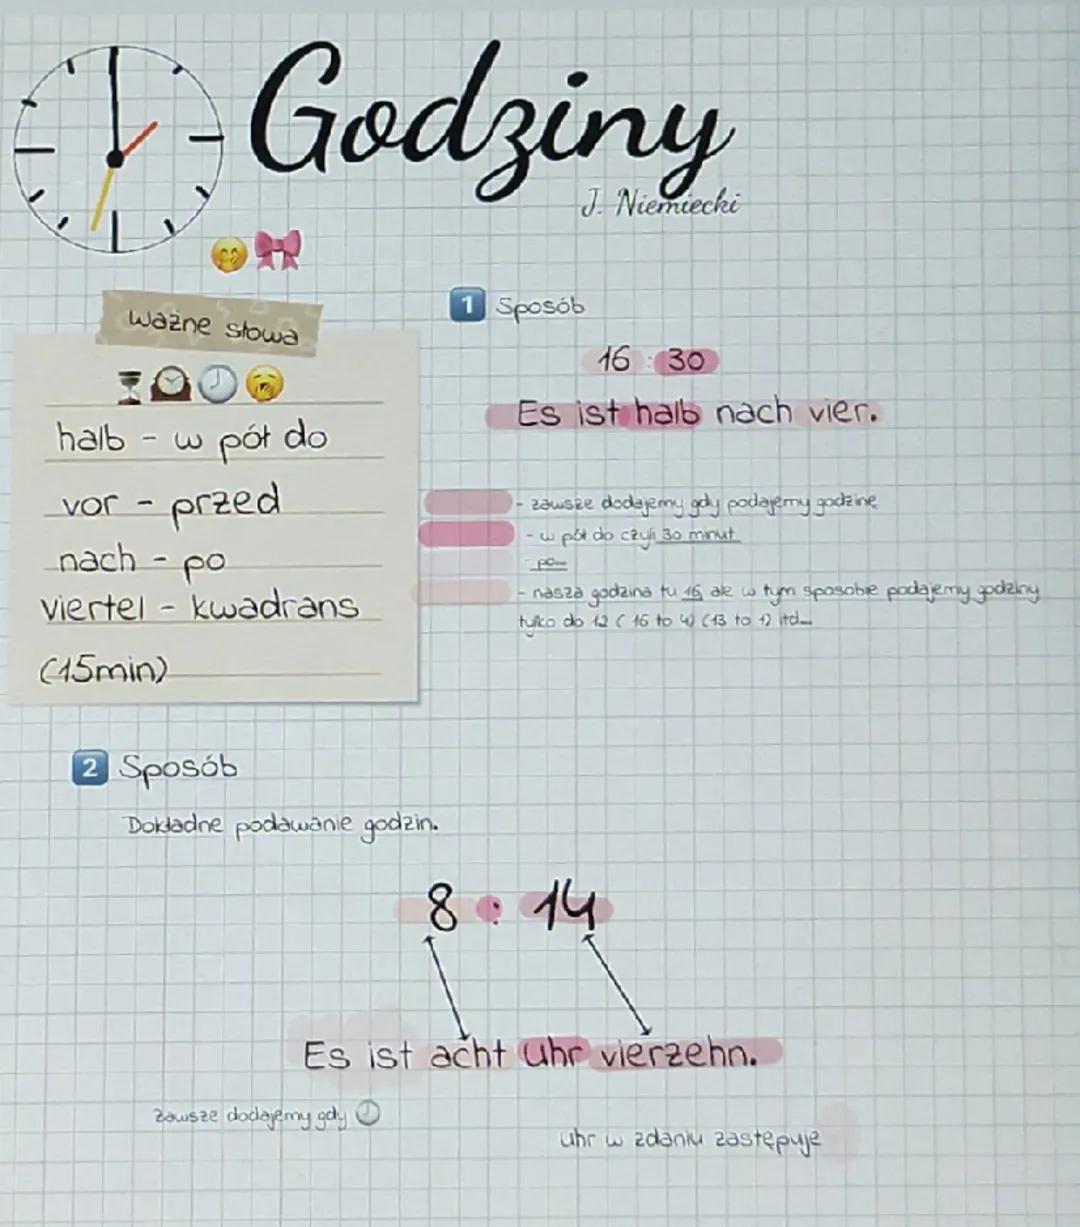 Godziny
J. Niemiecki
ważne słowa
halb - w pół do
vor - przed
nach - po
viertel - kwadrans
(15min)
1 Sposób
16 : 30
Es ist halb nach vier.
- zawsze dodajemy gdy podajemy godzinę
- w pół do czyli 30 minut
- po...
- nasza godzina tu 16, ale w tym sposobie podajemy godziny
tylko do 12 ( 16 to 4) (13 to 1) itd...
2 Sposób
Dokładne podawanie godzin.
8 : 14
Es ist acht uhr vierzehn.
zawsze dodajemy gdy
uhr w zdaniu zastępuje